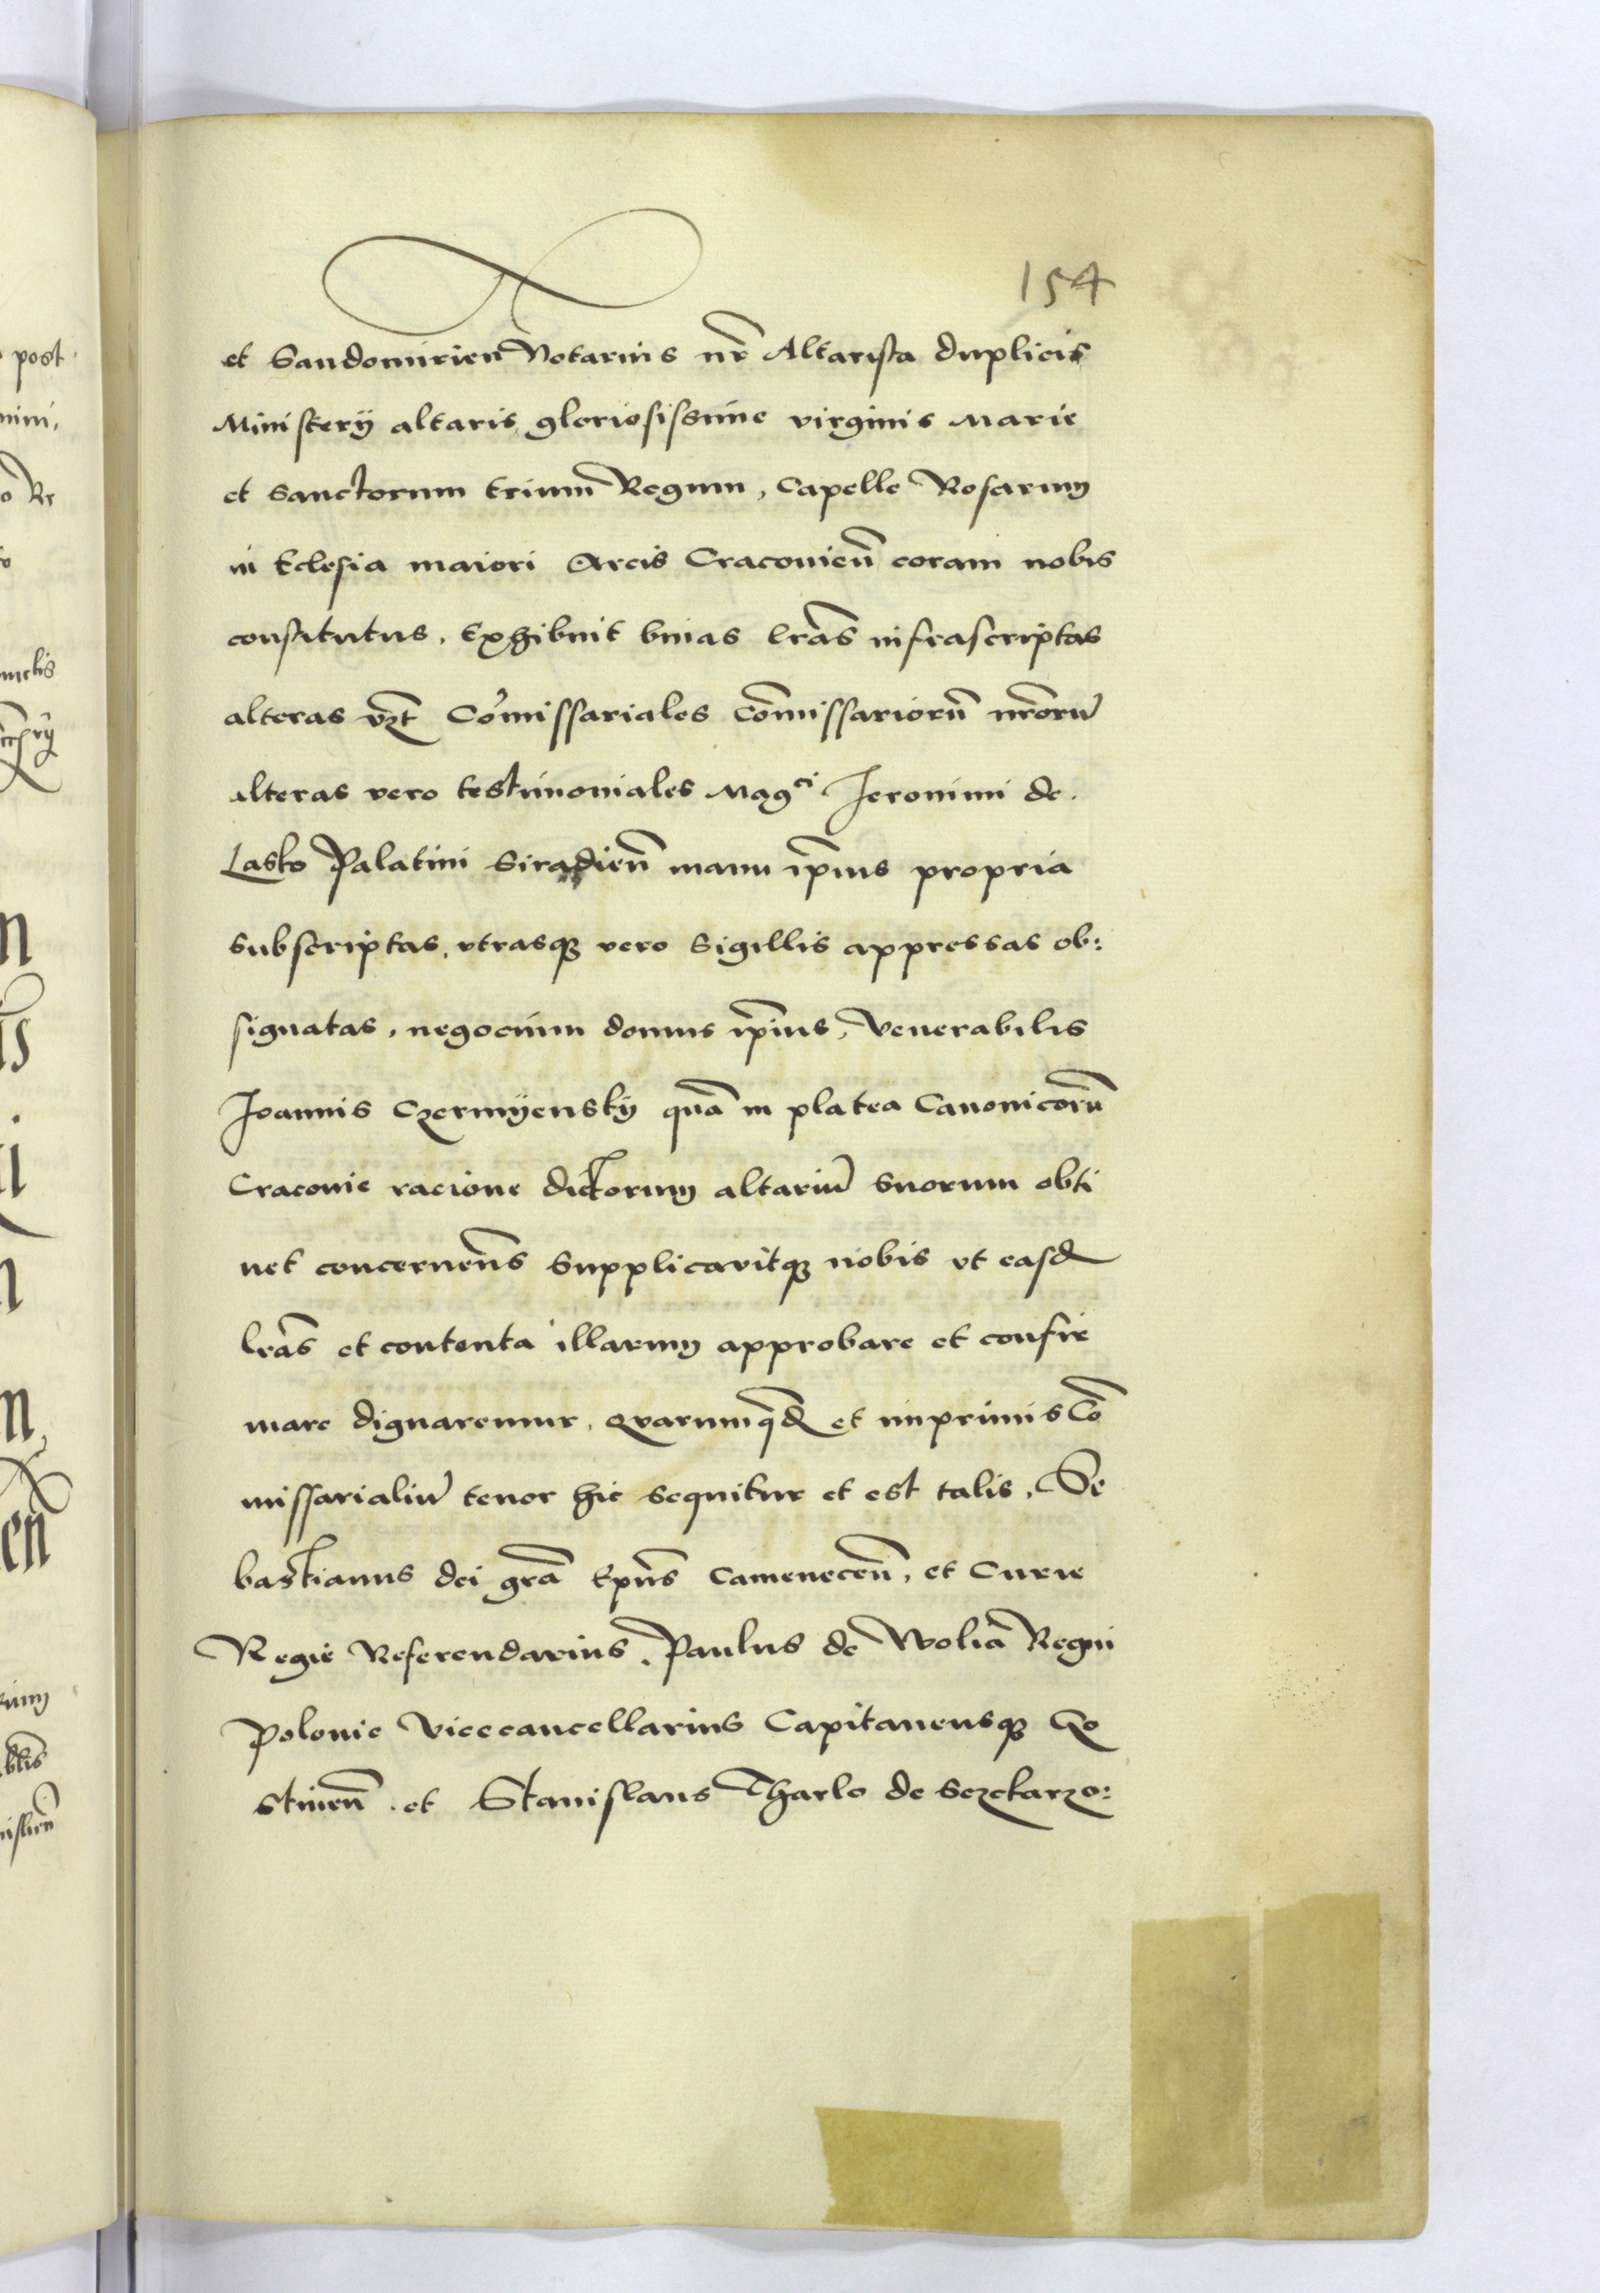 154
et Sandomirien̄ Notarius nr̄ Altarista duplicis
Ministerÿ altaris gloriosissime virginis Marie
et sanctorum trium Regum, Capelle Rosarum
in Eclesia maiori Arcis Cracouien̄ coram nobis
constitutus, Exhibuit binas lrās infrascriptas
alteras vꝫt Cōmissariales Com̄missariorū nr̄orū
alteras vero testimoniales Mag^ci Jeronimi de
Lasko Palatini Siradien̄ manu ip̄ius propria
subscriptas, vtrasqꝫ vero Sigillis appressas ob:
signatas, negocium domus ip̄ius, Venerabilis
Joannis Czermÿenskÿ quā in platea Canonicorū
Cracouie racione dictorum altariū suorum obti
net concernen̄s Supplicavitqꝫ nobis vt easd
lrās et contenta illarum approbare et confir
mare dignaremur, Qvarumqd et inprimis Co̅
missarialiū tenor hic sequitur et est talis, Se
bastianus dei grā Ep̄us Camenecen̄, et Curie
Regie Referendarius, Paulus de Wolia Regni
Polonie Vicecancellarius Capitaneusqꝫ Go
stinen̄ et Stanislaus Tharlo de Sczekarzo:
post
nini,
o Re
rum